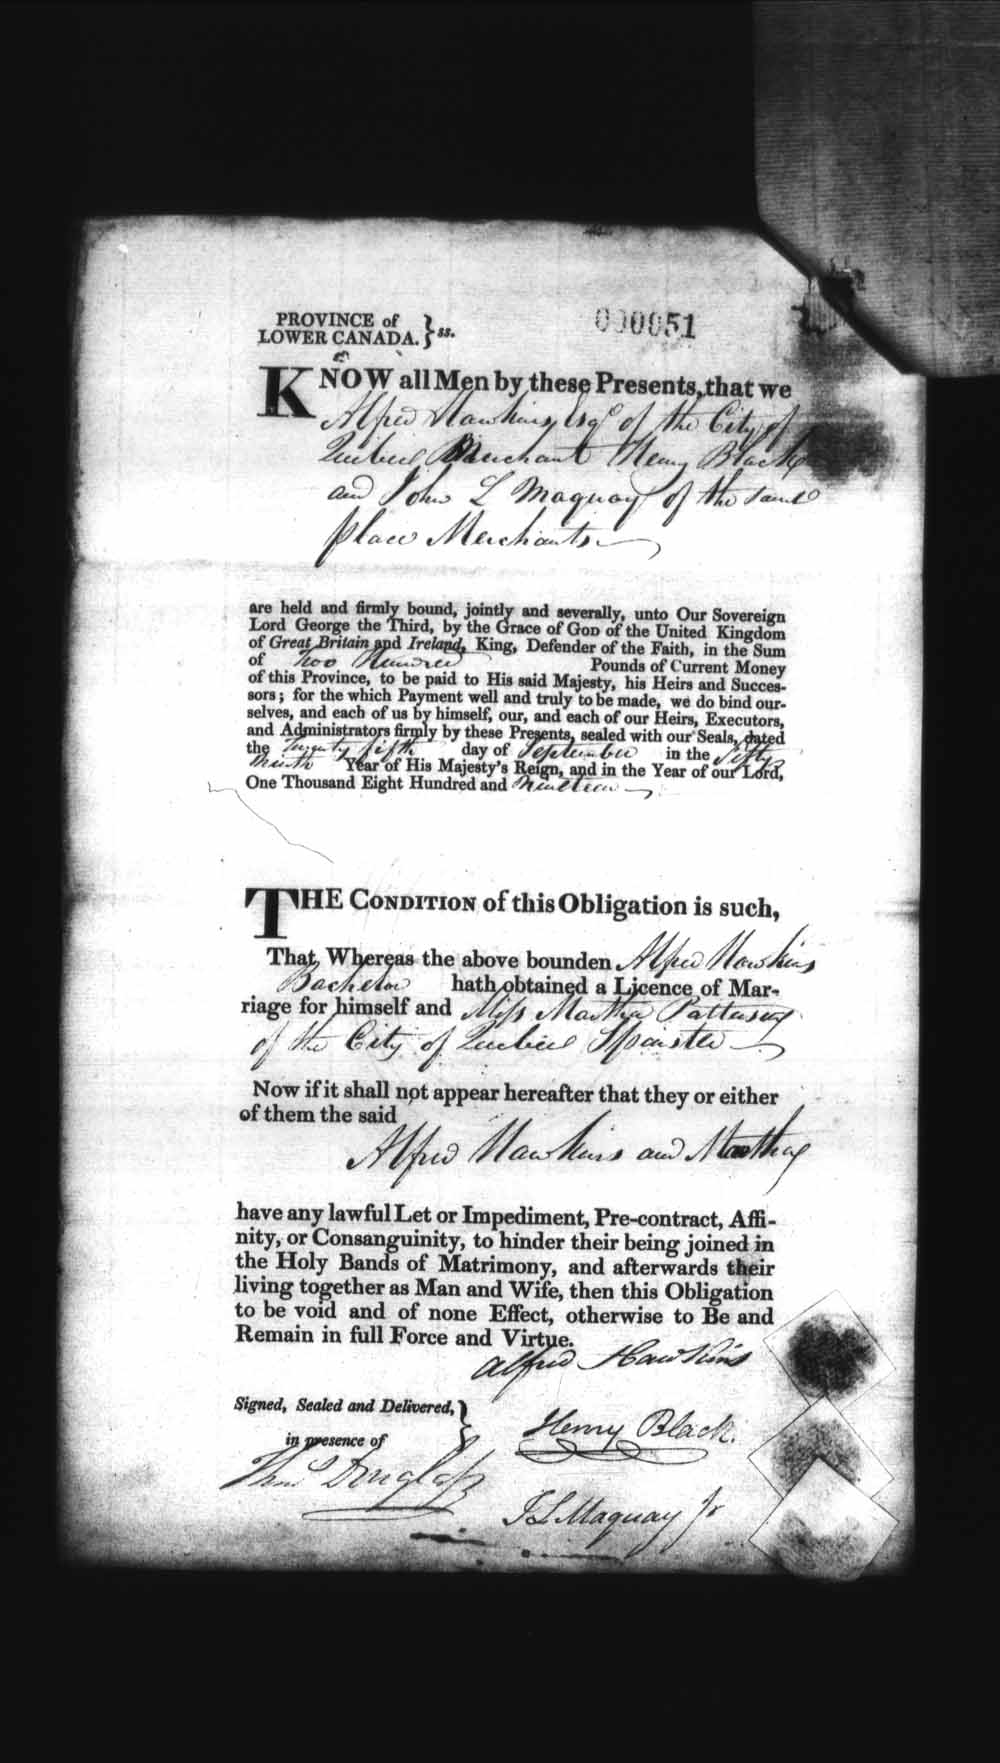 PROVINCE of
LOWER CANADA. } ss.
000051
KNOW all Men by these Presents, that we
Alfred Hawkins Esqr. of the City of
Quebec Merchant Henry Black
and John L Maquay of the same
place Merchants
are held and firmly bound, jointly and severally, unto Our Sovereign
Lord George the Third, by the Grace of GOD of the United Kingdom
of Great Britain and Ireland, King, Defender of the Faith, in the Sum
of Two Hundred Pounds of Current Money
of this Province, to be paid to His said Majesty, his Heirs and Succes-
sors; for the which Payment well and truly to be made, we do bind our-
selves, and each of us by himself, our, and each of our Heirs, Executors,
and Administrators firmly by these Presents, sealed with our Seals, dated
the Twenty fifth day of September in the Fifty
Ninth Year of His Majesty's Reign, and in the Year of our Lord,
One Thousand Eight Hundred and Nineteen
THE CONDITION of this Obligation is such,
That Whereas the above bounden Alfred Hawkins
Bachelor hath obtained a Licence of Mar-
riage for himself and Miss Martha Patterson
of the City of Quebec Spinster
Now if it shall not appear hereafter that they or either
of them the said
Alfred Hawkins and Martha
have any lawful Let or Impediment, Pre-contract, Affi-
nity, or Consanguinity, to hinder their being joined in
the Holy Bands of Matrimony, and afterwards their
living together as Man and Wife, then this Obligation
to be void and of none Effect, otherwise to Be and
Remain in full Force and Virtue.
Alfred Hawkins
Signed, Sealed and Delivered, }
in presence of
Henry Black.
Thos Douglass
J L Maquay Jr